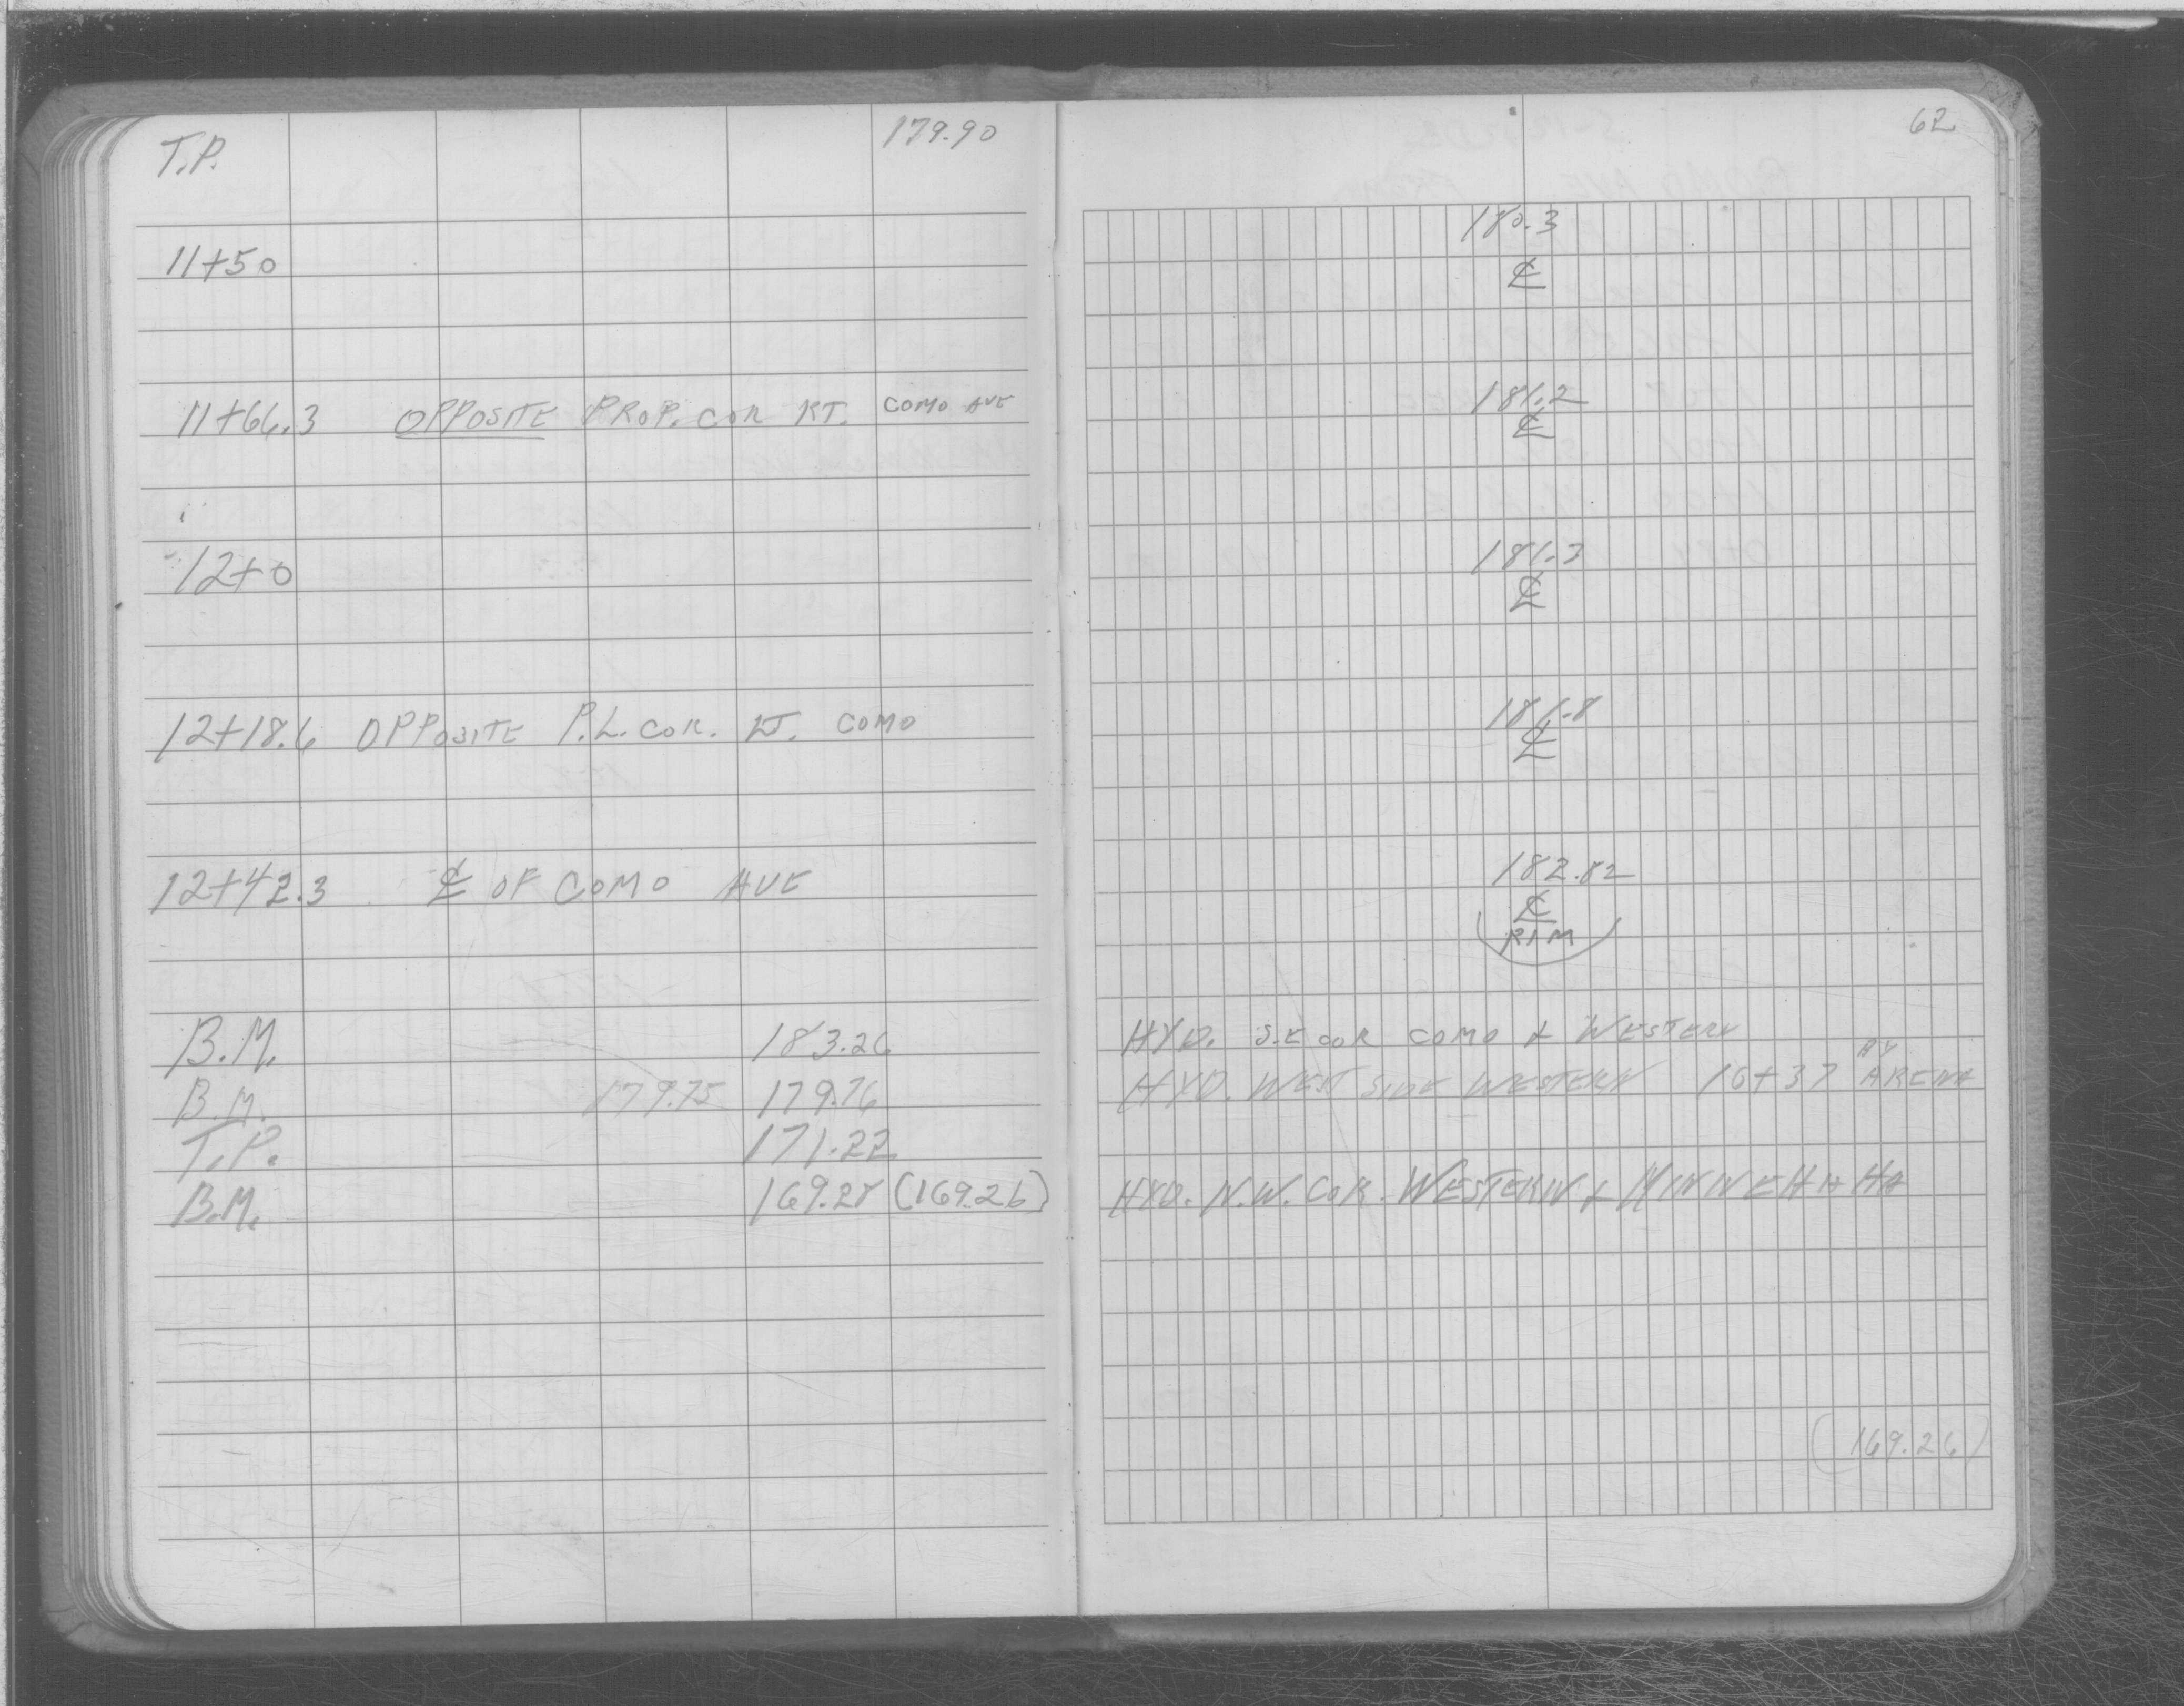 62
T.P. 179.90
180.3
11+50 ℄
11+66.3 OPPOSITE PROP. COR RT. COMO AVE 181.2
℄
12+0 181.3
℄
12+18.6 OPPOSITE P.L. COR. LT. COMO 181.8
℄
12+42.3 ℄ OF COMO AVE 182.82
℄
RIM
B.M. 183.26 HYD. S.E COR COMO & WESTERN
B.M. 179.75 179.76 HYD. WEST SIDE WESTERN 16+37 BY ARENA
T.P. 171.22
B.M. 169.28 (169.26) HYD. N.W. COR. WESTERN & MINNEHAHA
(169.26)